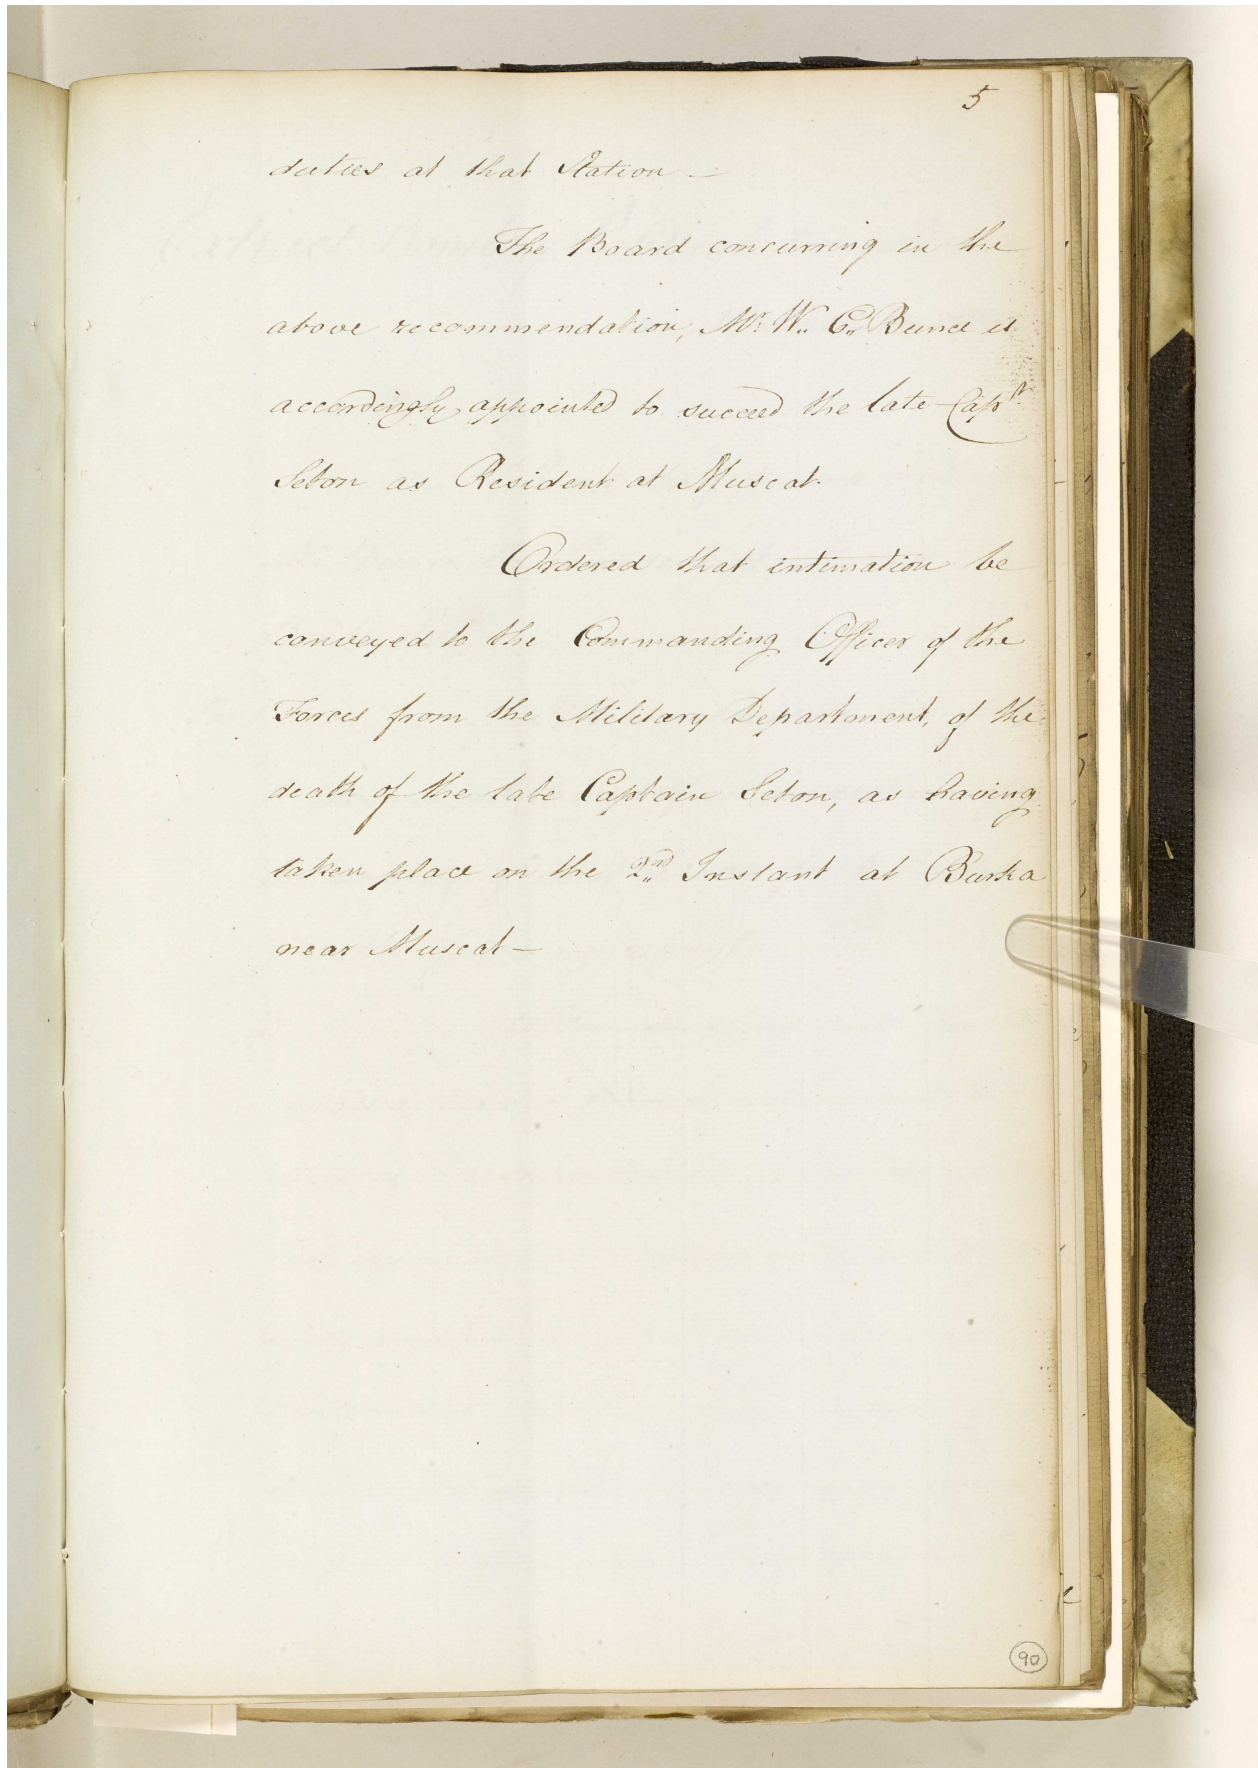 5
duties at that Station —
The Board concurring in the
above recommendation, Mr. W. C. Bunce is
accordingly appointed to succeed the late Captn.
Seton as Resident at Muscat.
Ordered that intimation be
conveyed to the Commanding Officer of the
Forces from the Military Department, of the
death of the late Captain Seton, as having
taken place on the 2nd. Instant at Burka
near Muscat —
90